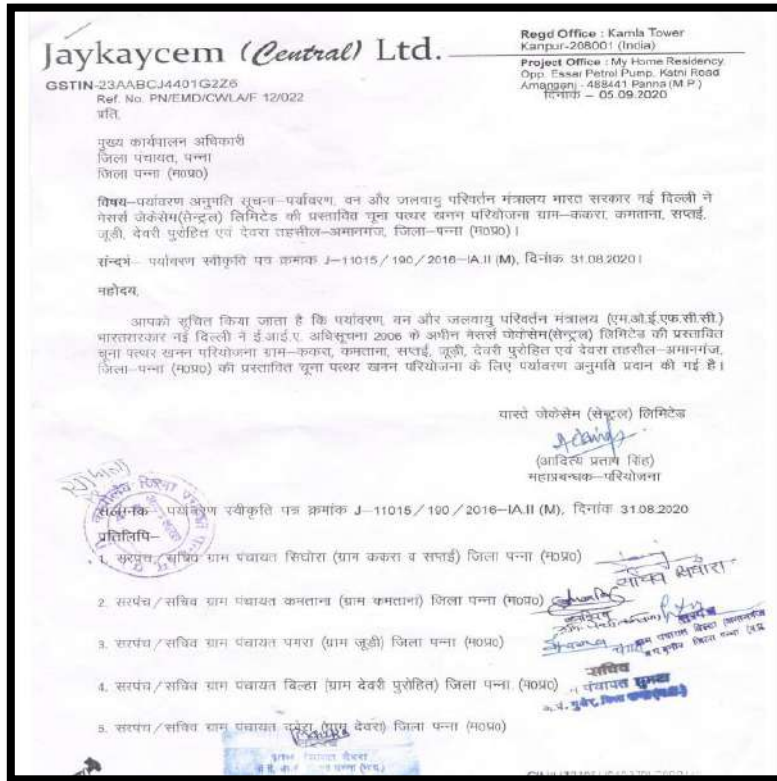 Jaykaycem (Central) Ltd.
Regd Office : Kamla Tower
Kanpur-208001 (India)
Project Office : My Home Residency,
Opp. Essar Petrol Pump, Katni Road
Amanganj - 488441 Panna (M.P.)
दिनांक – 05.09.2020
GSTIN-23AABCJ4401G2Z6
Ref. No. PN/EMD/CWLA/F 12/022
प्रति,
मुख्य कार्यपालन अधिकारी
जिला पंचायत, पन्ना
जिला पन्ना (म0प्र0)
विषय–पर्यावरण अनुमति सूचना–पर्यावरण, वन और जलवायु परिवर्तन मंत्रालय भारत सरकार नई दिल्ली ने
मेसर्स जेकेसेम(सेन्ट्रल) लिमिटेड की प्रस्तावित चूना पत्थर खनन परियोजना ग्राम–ककरा, कमताना, सप्तई,
जूड़ी, देवरी पुरोहित एवं देवरा तहसील–अमानगंज, जिला–पन्ना (म0प्र0)।
संन्दर्भ– पर्यावरण स्वीकृति पत्र क्रमांक J–11015/190/2016–IA.II (M), दिनांक 31.08.2020।
महोदय,
आपको सूचित किया जाता है कि पर्यावरण, वन और जलवायु परिवर्तन मंत्रालय (एम.ओ.ई.एफ.सी.सी.)
भारतसरकार नई दिल्ली ने ई.आई.ए. अधिसूचना 2006 के अधीन मेसर्स जेकेसेम(सेन्ट्रल) लिमिटेड की प्रस्तावित
चूना पत्थर खनन परियोजना ग्राम–ककरा, कमताना, सप्तई, जूड़ी, देवरी पुरोहित एवं देवरा तहसील–अमानगंज,
जिला–पन्ना (म0प्र0) की प्रस्तावित चूना पत्थर खनन परियोजना के लिए पर्यावरण अनुमति प्रदान की गई है।
वास्ते जेकेसेम (सेन्ट्रल) लिमिटेड
(आदित्य प्रताप सिंह)
महाप्रबन्धक–परियोजना
संलग्नक– पर्यावरण स्वीकृति पत्र क्रमांक J–11015/190/2016–IA.II (M), दिनांक 31.08.2020
प्रतिलिपि–
1. सरपंच/सचिव ग्राम पंचायत सिघोरा (ग्राम ककरा व सप्तई) जिला पन्ना (म0प्र0)
2. सरपंच/सचिव ग्राम पंचायत कमताना (ग्राम कमताना) जिला पन्ना (म0प्र0)
3. सरपंच/सचिव ग्राम पंचायत पगरा (ग्राम जूड़ी) जिला पन्ना (म0प्र0)
सरपंच
4. सरपंच/सचिव ग्राम पंचायत बिल्हा (ग्राम देवरी पुरोहित) जिला पन्ना (म0प्र0)
सचिव
5. सरपंच/सचिव ग्राम पंचायत (ग्राम देवरा) जिला पन्ना (म0प्र0)